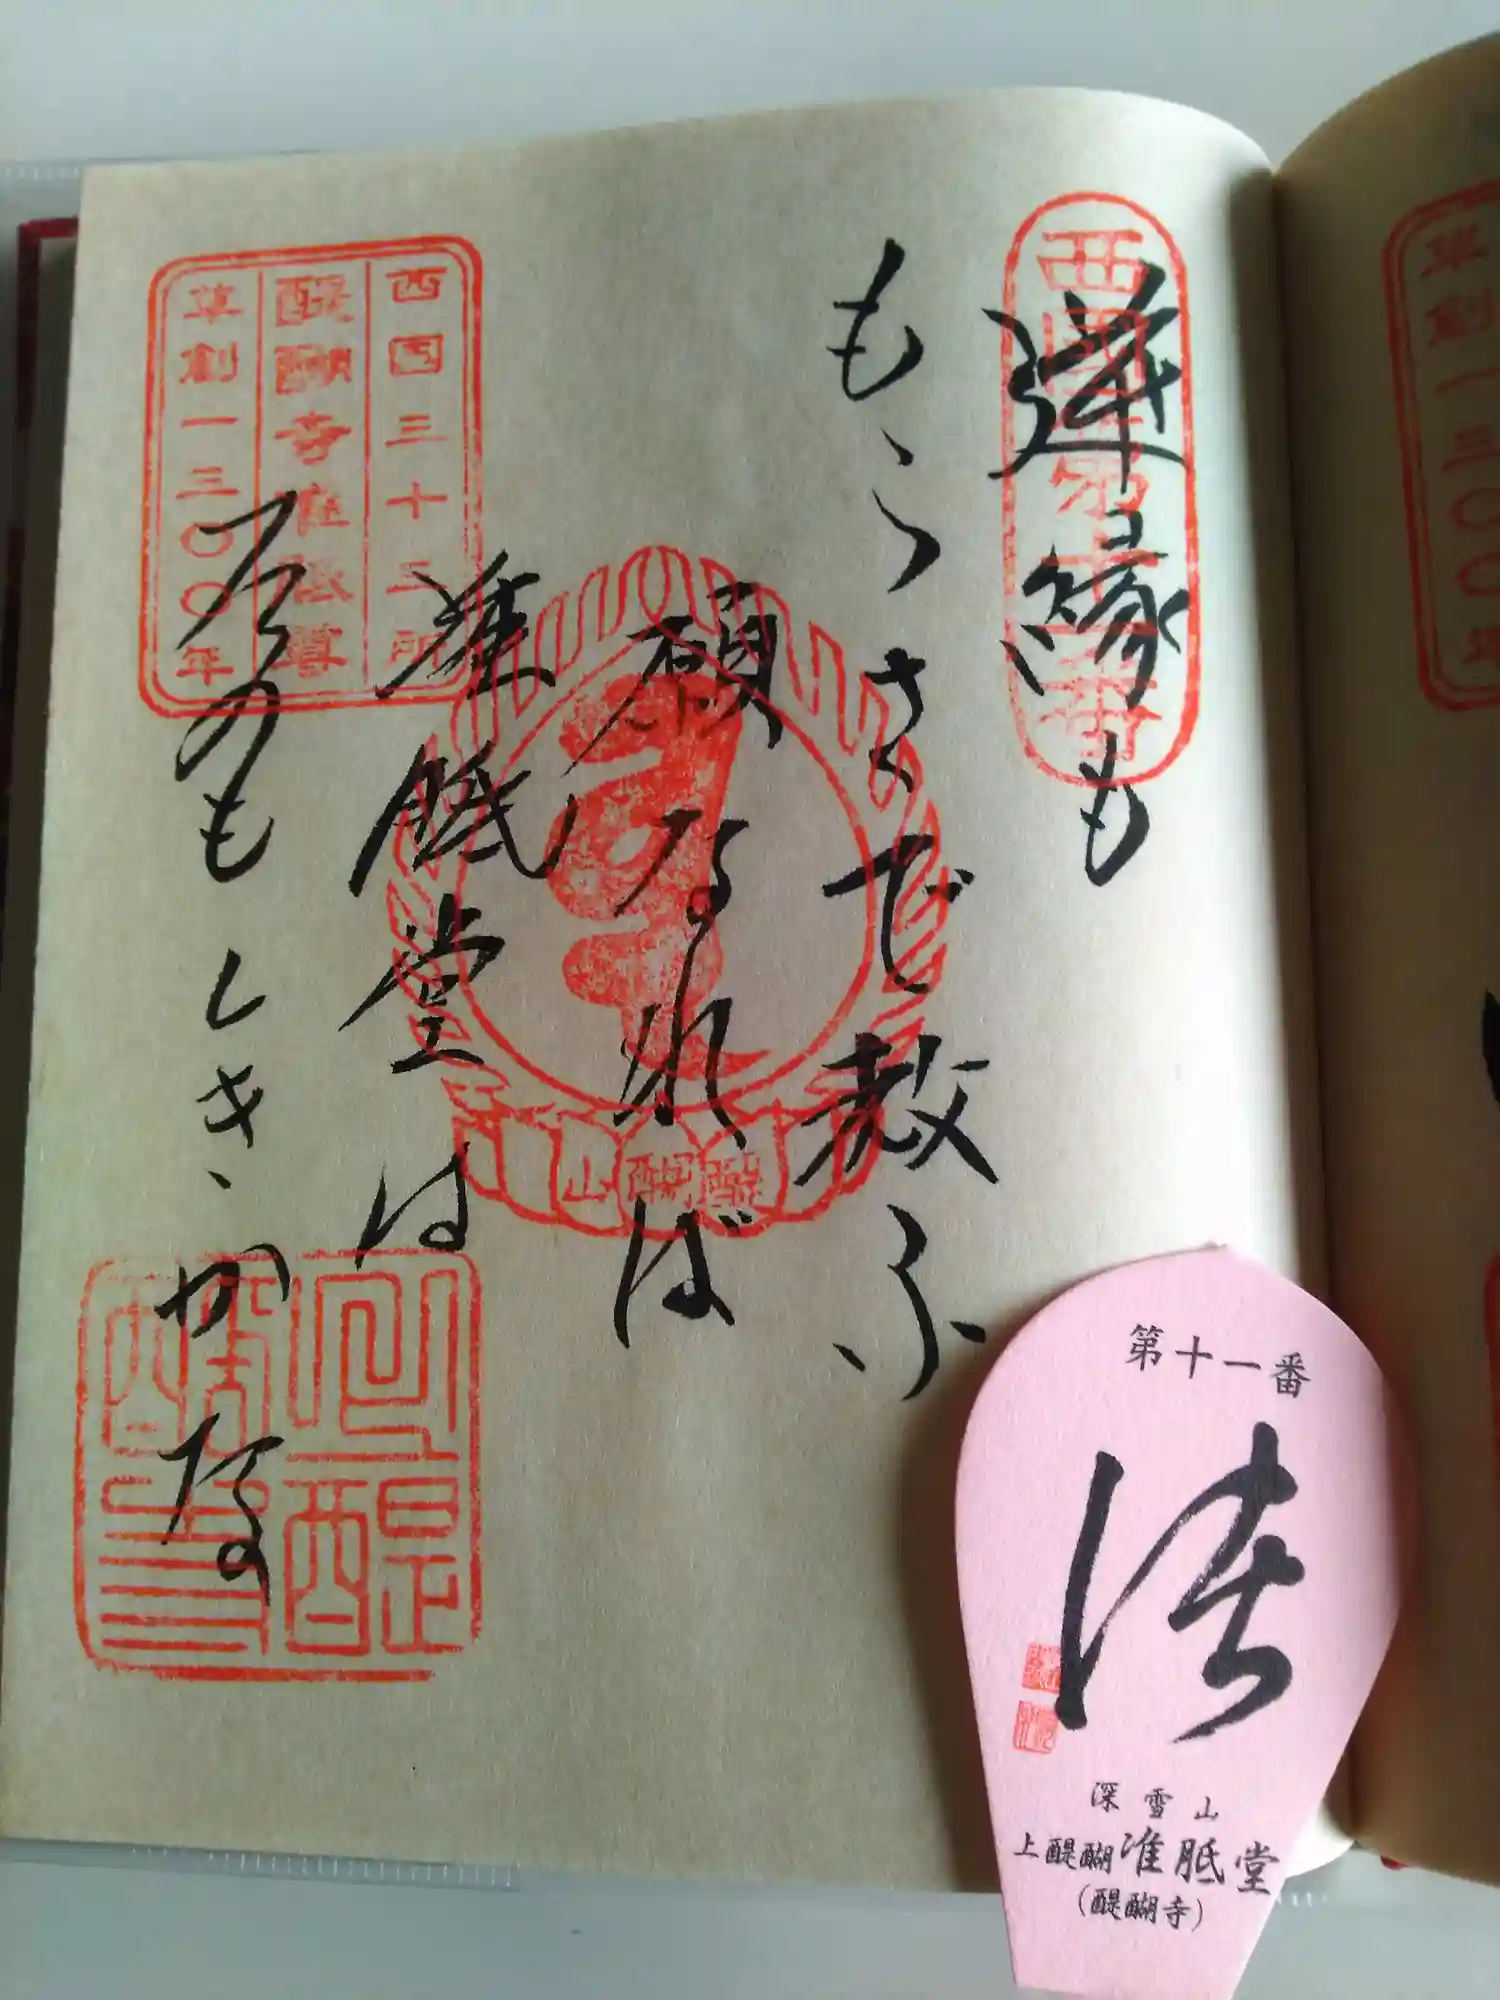 西國第十一番
逆縁も
もらさで救ふ
願なれば
准胝堂は
たのもしきかな
西国三十三所
醍醐寺
草創一三〇〇年
醍醐山
第十一番
法
深雪山
上醍醐准胝堂
(醍醐寺)
草創一三〇〇年